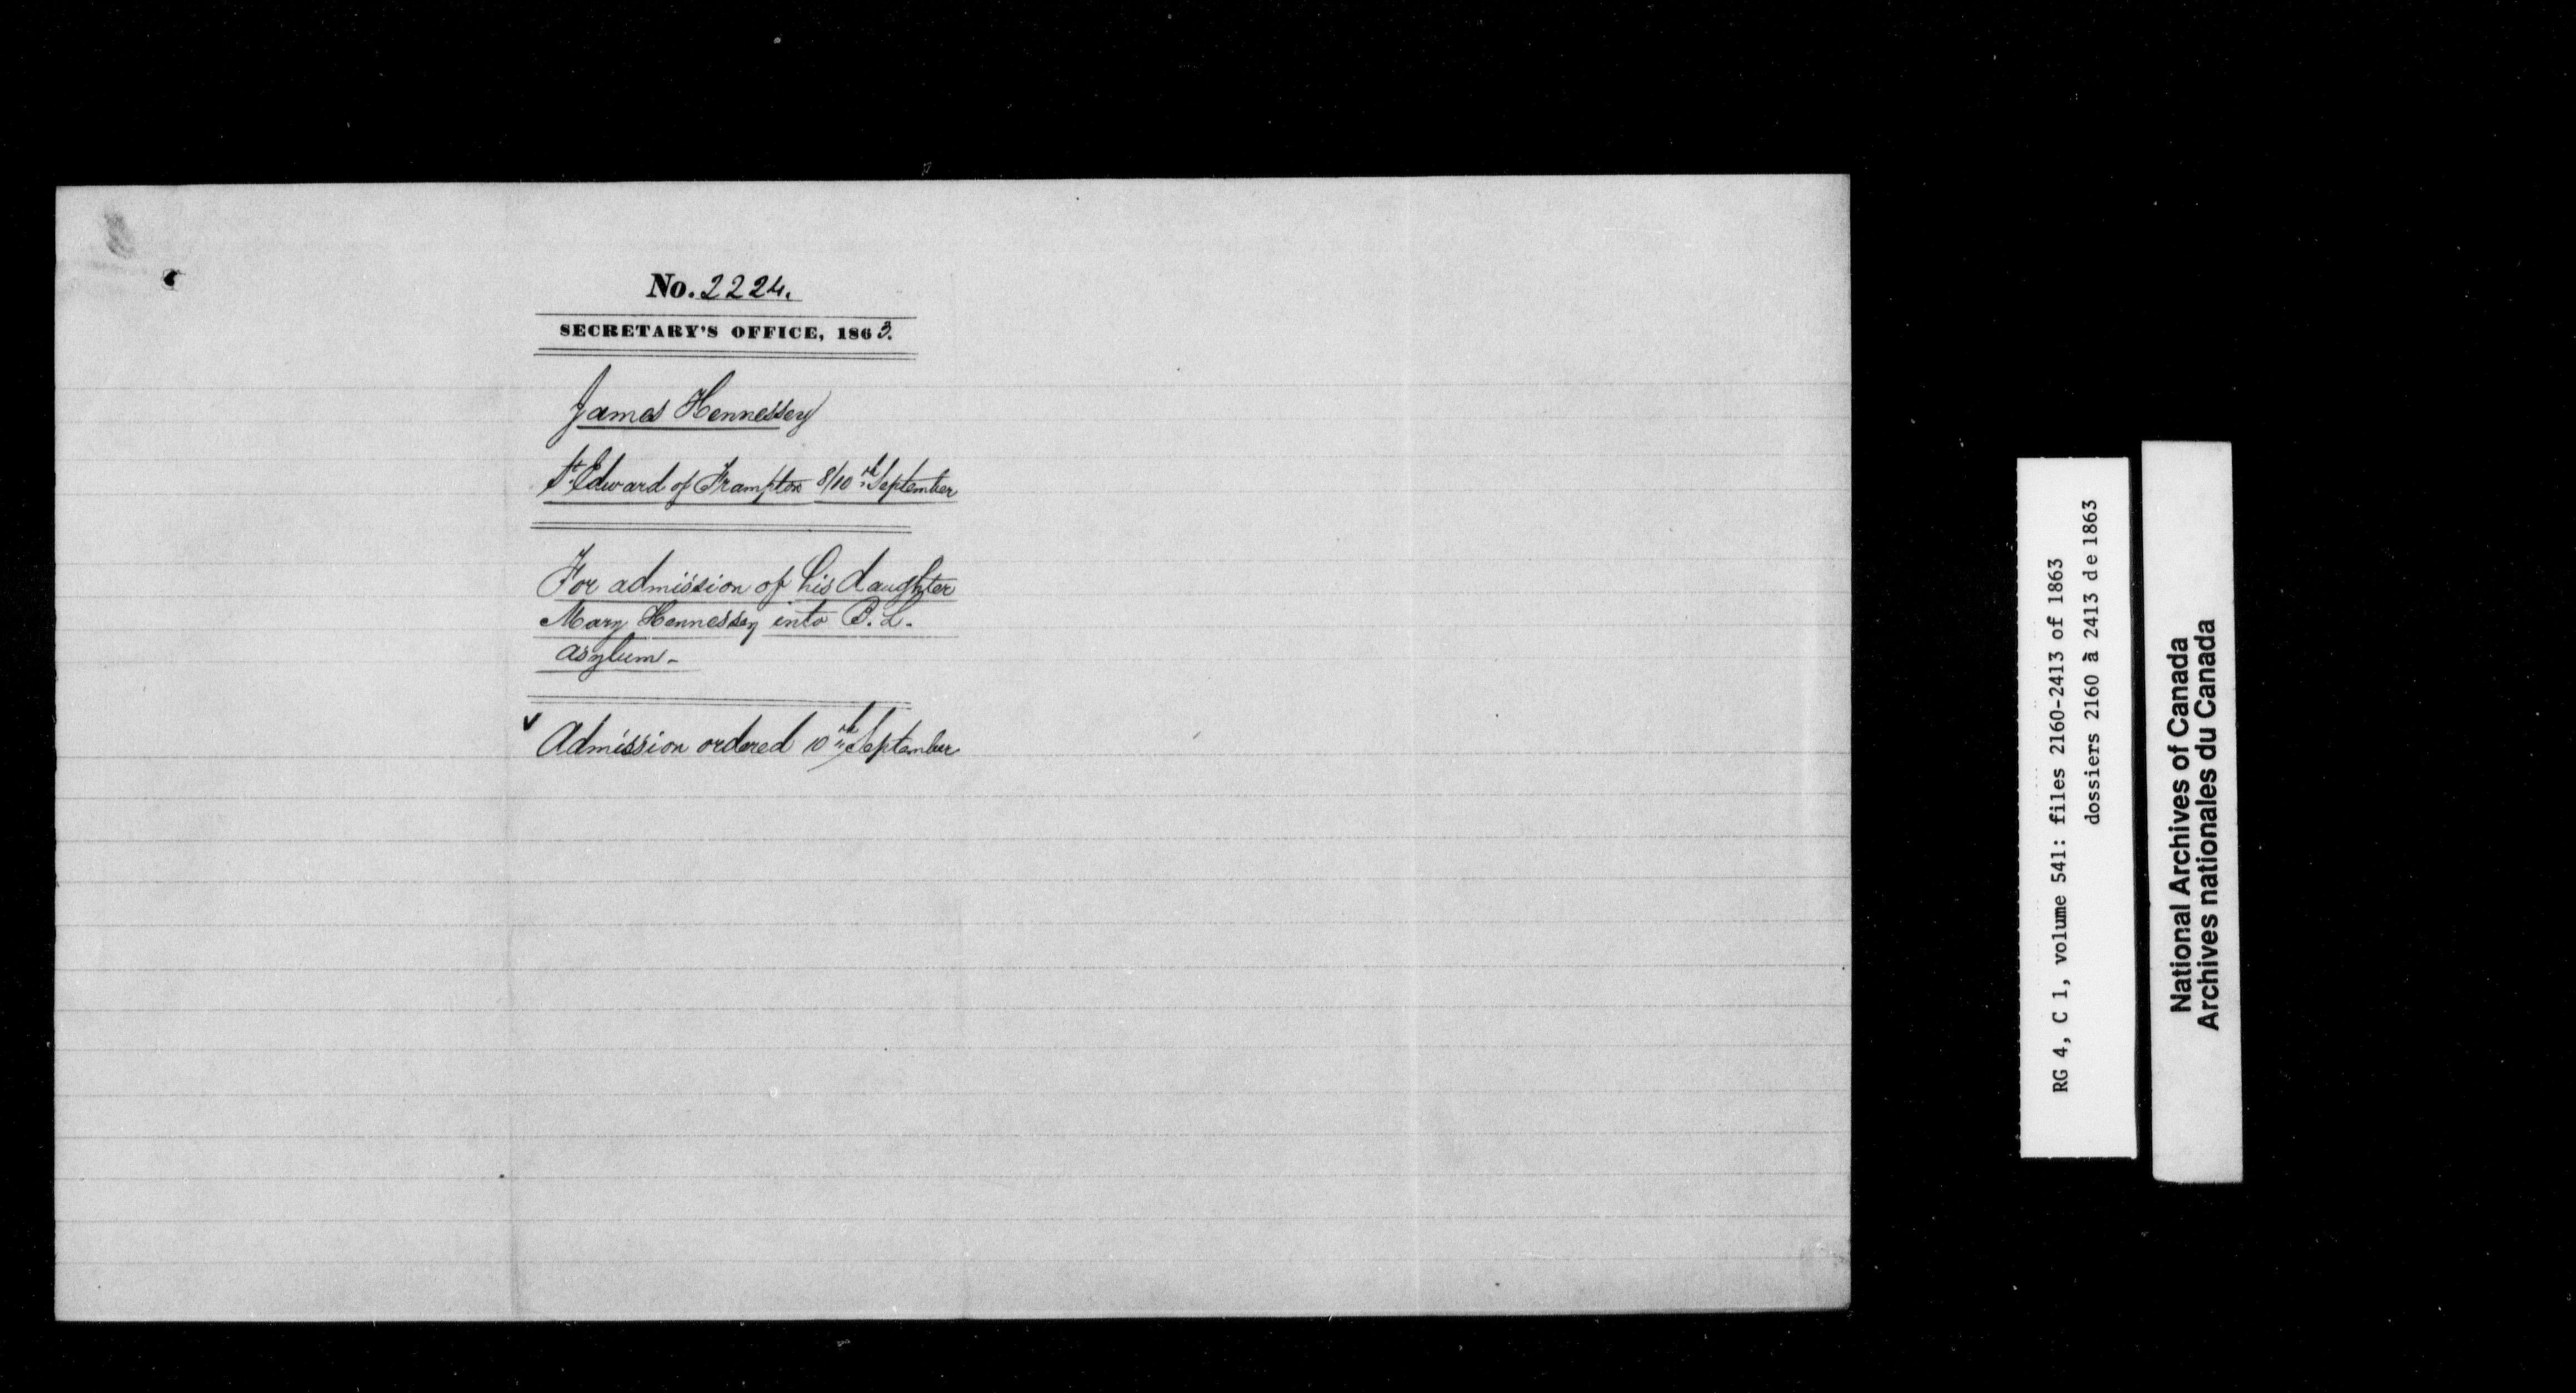 No. 2224.
SECRETARY'S OFFICE, 1863.
James Hennessey
St Edward of Frampton 8/10th September
For admission of his daughter
Mary Hennessey into B. L.
asylum -
v Admission ordered 10th September
RG 4, C 1, volume 541: files 2160-2413 of 1863
dossiers 2160 à 2413 de 1863
National Archives of Canada
Archives nationales du Canada